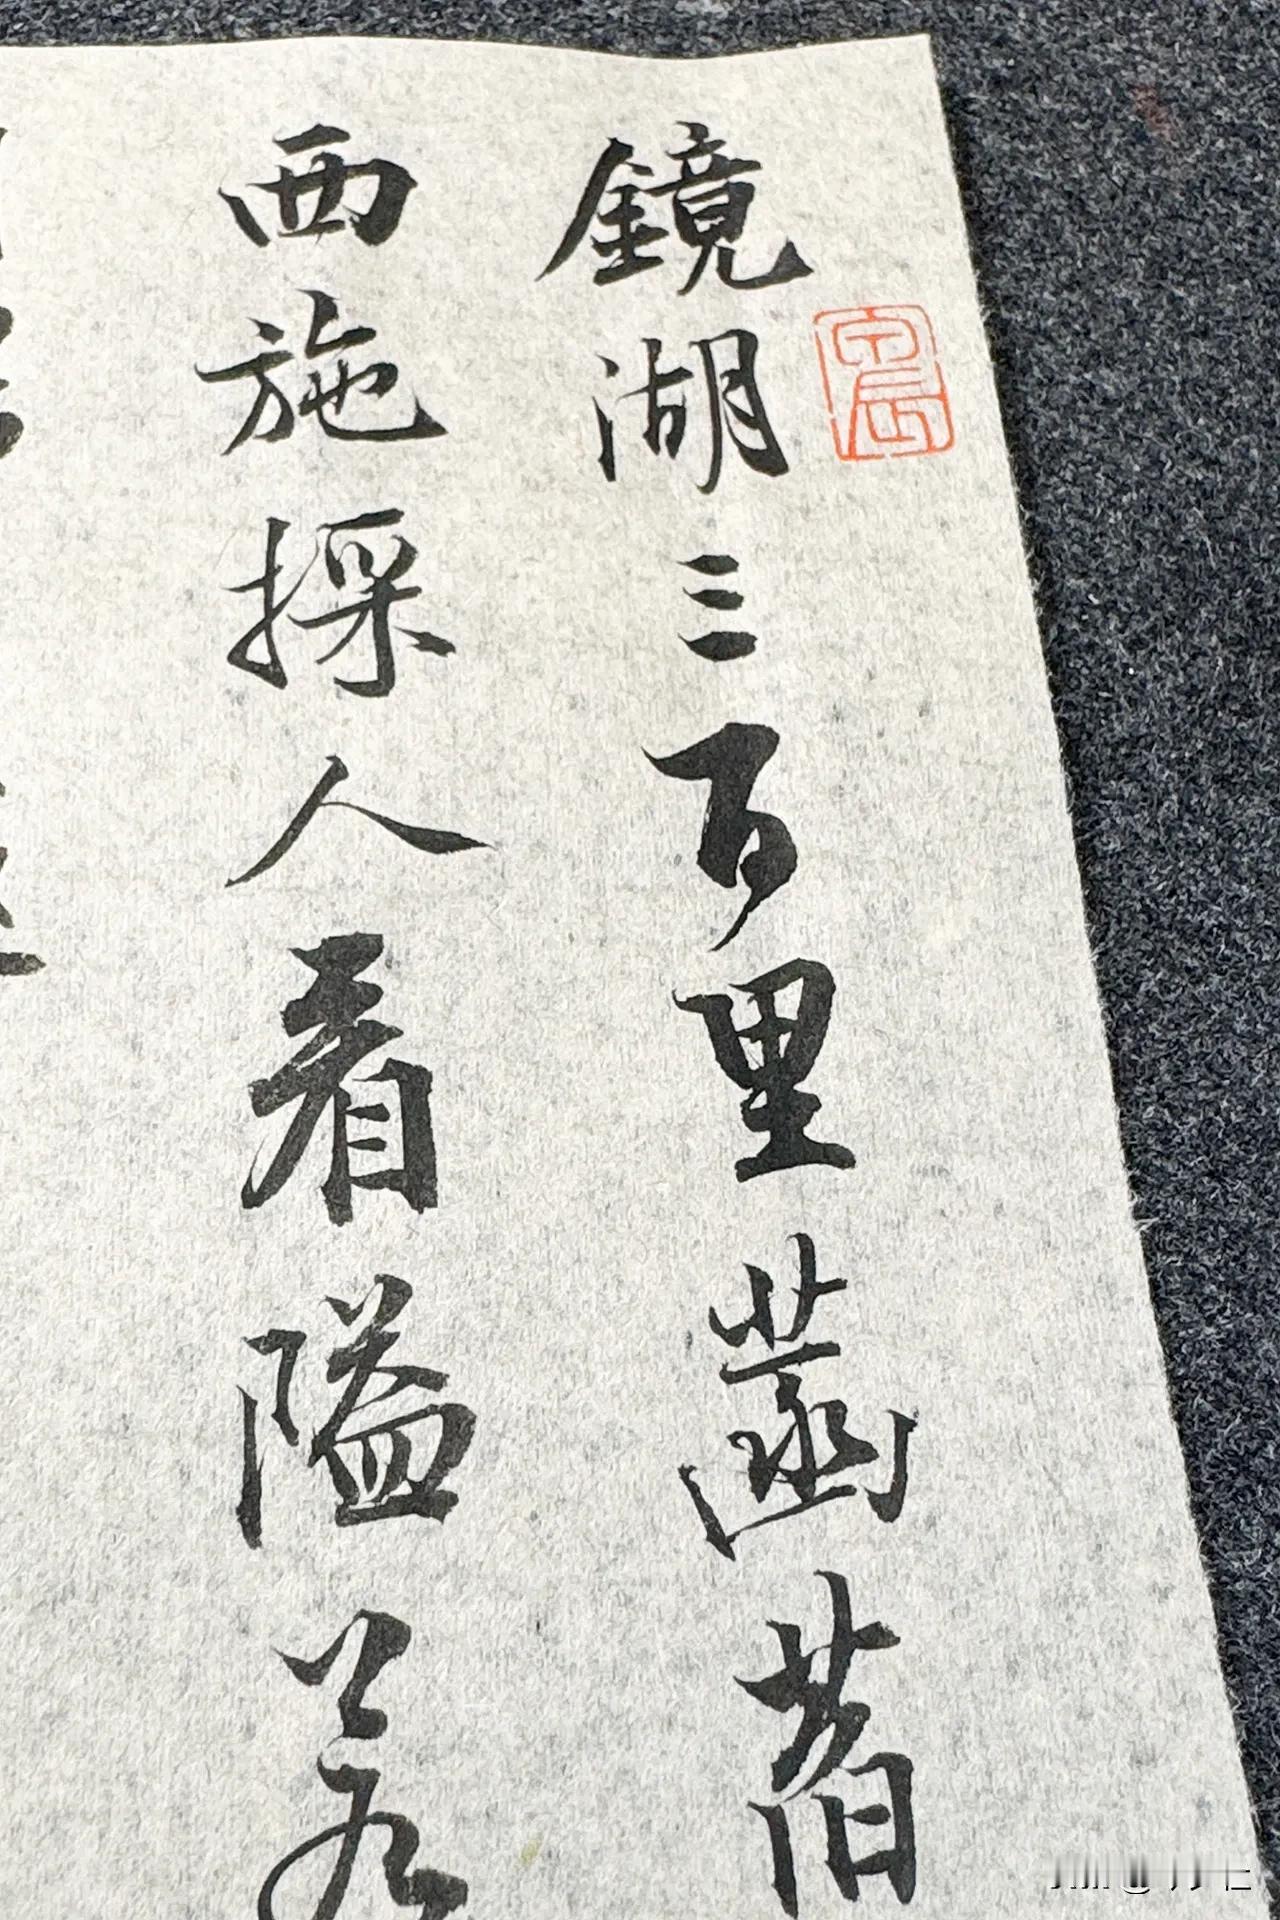 鏡湖三百里菡萏
西施採人看隘若